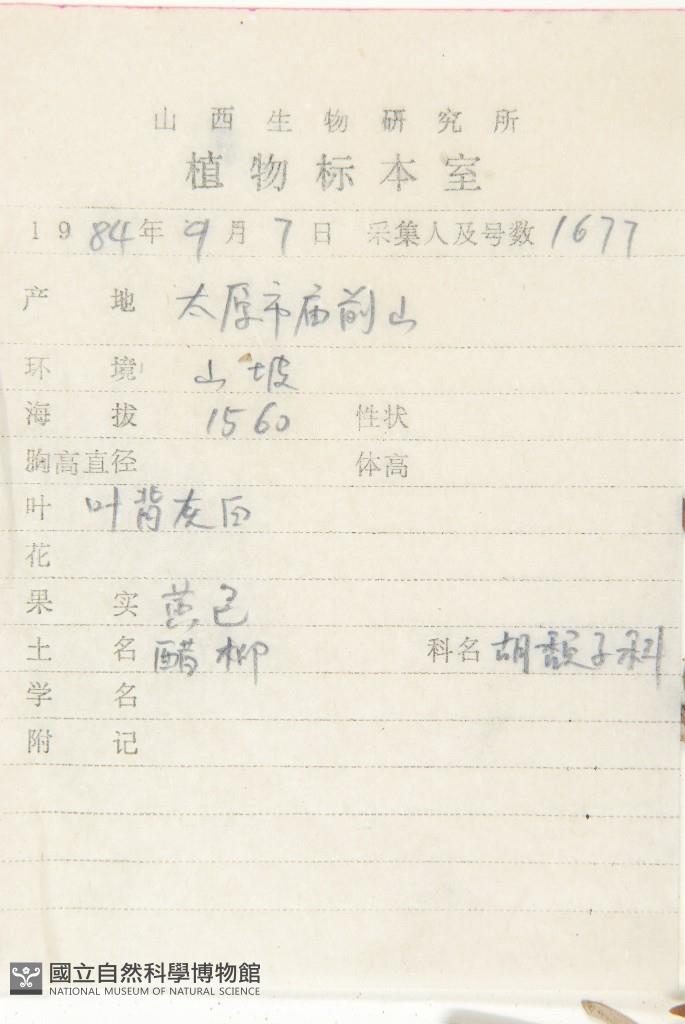 山西生物研究所
植物标本室
1984年9月7日 采集人及号数 1677
产地 太原市庙前山
环境 山坡
海拔 1560 性状
胸高直径 体高
叶 叶背灰白
花
果实 黄色
土名 醋柳 科名 胡颓子科
学名
附记
國立自然科學博物館
NATIONAL MUSEUM OF NATURAL SCIENCE